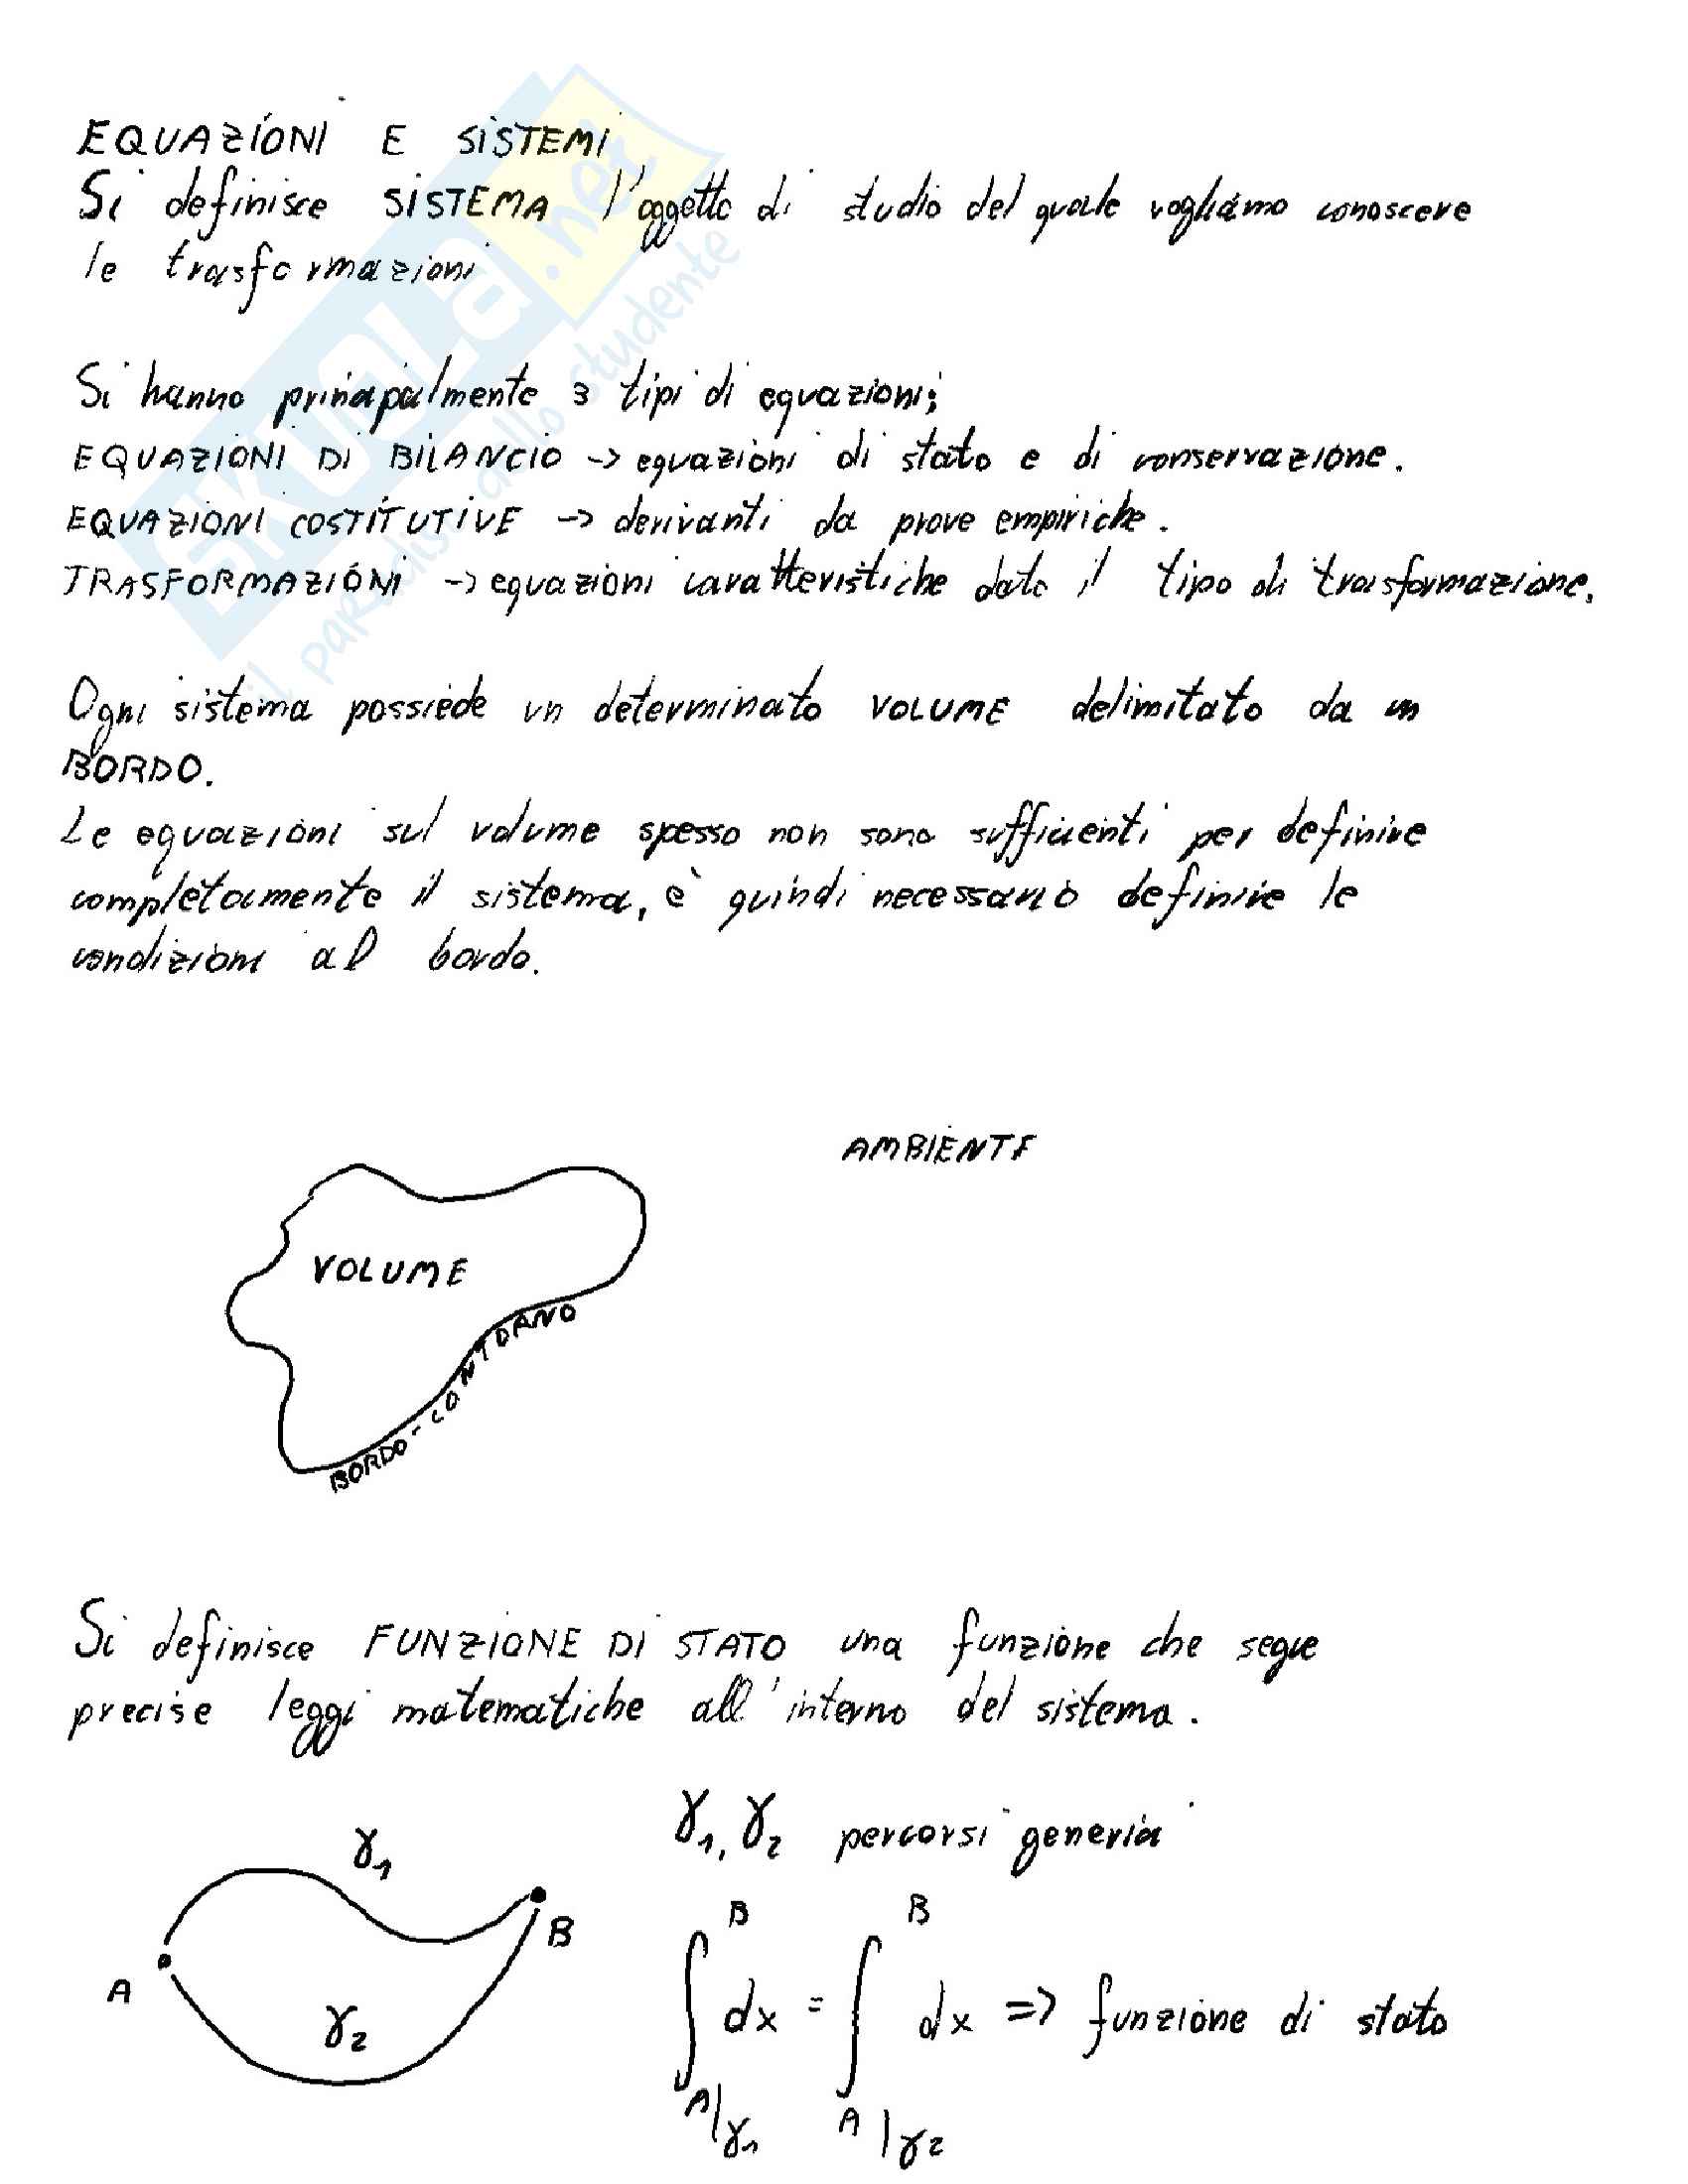 EQUAZIONI E SISTEMI
Si definisce SISTEMA l'oggetto di studio del quale vogliamo conoscere
le trasformazioni
Si hanno principalmente 3 tipi di equazioni;
EQUAZIONI DI BILANCIO -> equazioni di stato e di conservazione.
EQUAZIONI COSTITUTIVE -> derivanti da prove empiriche.
TRASFORMAZIONI -> equazioni caratteristiche dato il tipo di trasformazione.
Ogni sistema possiede un determinato VOLUME delimitato da un
BORDO.
Le equazioni sul volume spesso non sono sufficienti per definire
completamente il sistema, è quindi necessario definire le
condizioni al bordo.
AMBIENTE
VOLUME
BORDO - CONTORNO
Si definisce FUNZIONE DI STATO una funzione che segue
precise leggi matematiche all'interno del sistema.
γ1, γ2 percorsi generici
γ1
A
B
γ2
∫_{A|γ1}^{B} dx = ∫_{A|γ2}^{B} dx => funzione di stato
SKUOLA.net
il paradiso dello studente